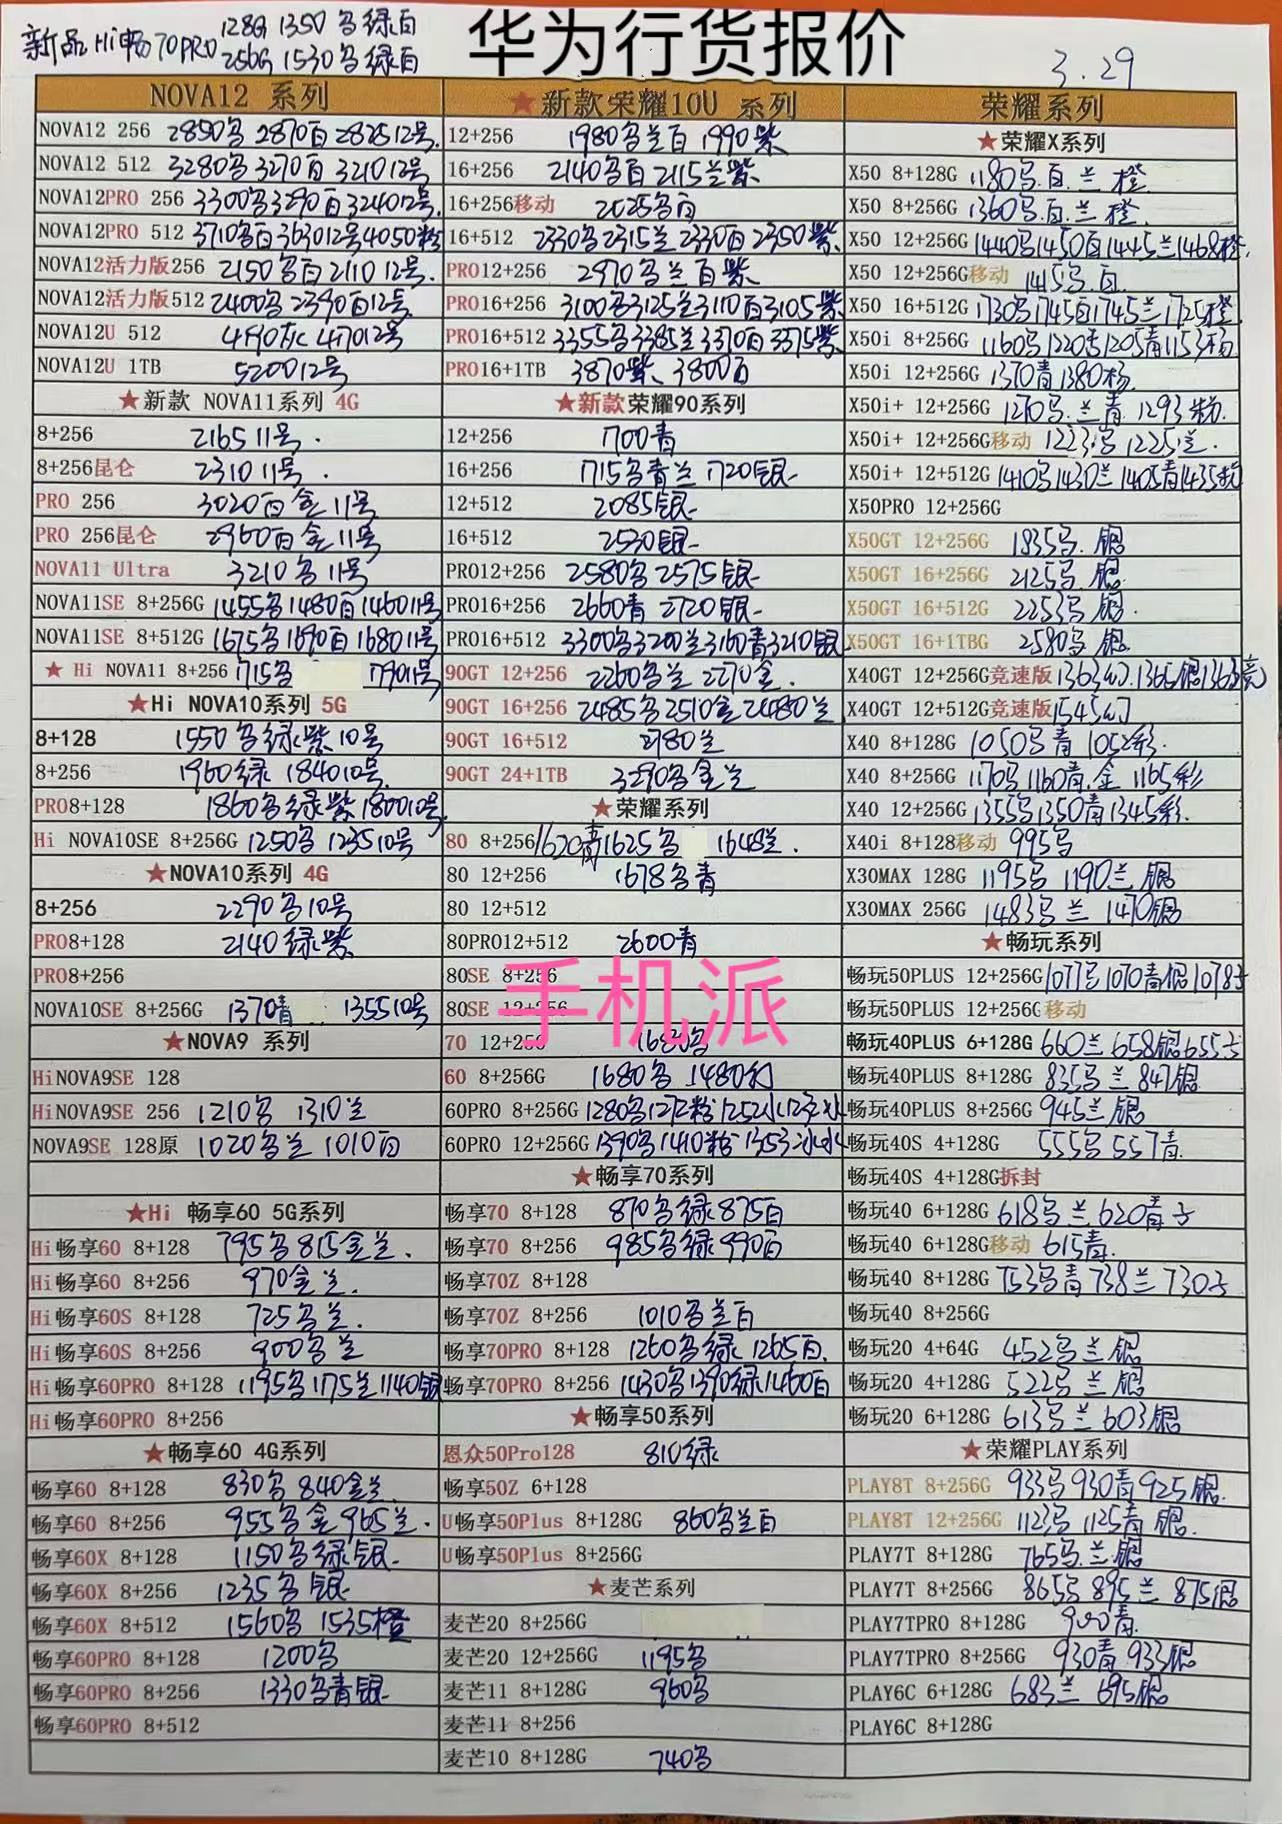 华为行货报价
新品 Hi畅70PRO 128G 1350 鸟绿白
256G 1530鸟绿白
3.29
NOVA12 系列
NOVA12 256 2850鸟 2870百 2825 12号.
NOVA12 512 3280鸟 3270百 3210 12号
NOVA12PRO 256 3300鸟3290百3240 12号.
NOVA12PRO 512 3710鸟百3630 12号4050粉
NOVA12活力版256 2150鸟百2110 12号.
NOVA12活力版512 2400鸟 2390百12号
NOVA12U 512 4490灰 4470 12号
NOVA12U 1TB 5200 12号
★新款 NOVA11系列 4G
8+256 2165 11号.
8+256昆仑 2310 11号.
PRO 256 3020百金11号
PRO 256昆仑 2960百金11号
NOVA11 Ultra 3210鸟11号
NOVA11SE 8+256G 1455鸟1480百1460 11号
NOVA11SE 8+512G 1675鸟1690百1680 11号
★ Hi NOVA11 8+256 1715鸟 1790 11号
★Hi NOVA10系列 5G
8+128 1550鸟绿紫10号
8+256 1960绿 1840 10号
PRO8+128 1860鸟绿紫1800 10号
Hi NOVA10SE 8+256G 1250鸟 1235 10号
★NOVA10系列 4G
8+256 2290鸟10号
PRO8+128 2140绿紫
PRO8+256
NOVA10SE 8+256G 1370青 1355 10号
★NOVA9 系列
HiNOVA9SE 128
HiNOVA9SE 256 1210鸟 1310兰
NOVA9SE 128原 1020鸟兰 1010百
★Hi 畅享60 5G系列
Hi畅享60 8+128 795鸟815金兰.
Hi畅享60 8+256 970金兰.
Hi畅享60S 8+128 725鸟兰.
Hi畅享60S 8+256 900鸟兰
Hi畅享60PRO 8+128 1195鸟1175兰1140银
Hi畅享60PRO 8+256
★畅享60 4G系列
畅享60 8+128 830鸟 840金兰
畅享60 8+256 955鸟金965兰.
畅享60X 8+128 1150鸟绿银
畅享60X 8+256 1235鸟银
畅享60X 8+512 1560鸟 1535橙
畅享60PRO 8+128 1200鸟
畅享60PRO 8+256 1330鸟青银
畅享60PRO 8+512
★新款荣耀10U 系列
12+256 1980鸟兰百 1990紫
16+256 2140鸟百 2115兰紫
16+256移动 2025鸟百
16+512 2330鸟2315兰2330百2350紫
PRO12+256 2970鸟兰百紫
PRO16+256 3100鸟3125兰3110百3105紫
PRO16+512 3355鸟3385兰3370百3375紫
PRO16+1TB 3870紫、3800百
★新款荣耀90系列
12+256 1700青
16+256 1715鸟青兰 1720银
12+512 2085银
16+512 2530银
PRO12+256 2580鸟 2575银
PRO16+256 2660青 2720银
PRO16+512 3300鸟3200兰3160青3210银
90GT 12+256 2260鸟兰 2270金.
90GT 16+256 2485鸟2510金2480兰
90GT 16+512 2780兰
90GT 24+1TB 3290鸟金兰
★荣耀系列
80 8+256 1620青1625鸟 1648兰.
80 12+256 1678鸟青
80 12+512
80PRO12+512 2600青
80SE 8+256
手机派
80SE 12+256
70 12+256 1680鸟
60 8+256G 1680鸟 1480
60PRO 8+256G 1280鸟1272粉1252冰
60PRO 12+256G 1390鸟1410粉1353冰
★畅享70系列
畅享70 8+128 870鸟绿875百
畅享70 8+256 985鸟绿990百
畅享70Z 8+128
畅享70Z 8+256 1010鸟兰百
畅享70PRO 8+128 1260鸟绿 1265百.
畅享70PRO 8+256 1430鸟1390绿1460百
★畅享50系列
恩众50Pro128 810绿
畅享50Z 6+128
U畅享50Plus 8+128G 860鸟兰百
U畅享50Plus 8+256G
★麦芒系列
麦芒20 8+256G
麦芒20 12+256G 1195鸟
麦芒11 8+128G 960鸟
麦芒11 8+256
麦芒10 8+128G 740鸟
荣耀系列
★荣耀X系列
X50 8+128G 1180鸟.百.兰 橙
X50 8+256G 1360鸟.百.兰 橙.
X50 12+256G 1440鸟1450百1445兰1468橙.
X50 12+256G移动 1415鸟.百.
X50 16+512G 1730鸟1745百1745兰1725橙
X50i 8+256G 1160鸟1220 1205青1153杨
X50i 12+256G 1370青1380杨.
X50i+ 12+256G 1270鸟.兰青 1293粉.
X50i+ 12+256G移动 1223鸟 1225兰.
X50i+ 12+512G 1410鸟1430兰 1405青1435粉
X50PRO 12+256G
X50GT 12+256G 1835鸟. 银
X50GT 16+256G 2125鸟. 银
X50GT 16+512G 2253鸟 银.
X50GT 16+1TBG 2580鸟 银
X40GT 12+256G竞速版1363幻.1365银1363竞
X40GT 12+512G竞速版1545幻
X40 8+128G 1050鸟青 1052彩.
X40 8+256G 1170鸟1160青.金 1165彩
X40 12+256G 1355鸟1350青1345彩.
X40i 8+128移动 995鸟
X30MAX 128G 1195鸟 1190兰 银
X30MAX 256G 1483鸟兰 1470银
★畅玩系列
畅玩50PLUS 12+256G 1077鸟1070青银1078子
畅玩50PLUS 12+256G移动
畅玩40PLUS 6+128G 660兰 658银655子
畅玩40PLUS 8+128G 835鸟兰 847银
畅玩40PLUS 8+256G 945兰 银
畅玩40S 4+128G 555鸟 557青
畅玩40S 4+128G拆封
畅玩40 6+128G 618鸟 兰 620青子
畅玩40 6+128G移动 615青.
畅玩40 8+128G 753鸟青 738兰 730子
畅玩40 8+256G
畅玩20 4+64G 452鸟兰 银
畅玩20 4+128G 522鸟兰 银
畅玩20 6+128G 613鸟兰 603银
★荣耀PLAY系列
PLAY8T 8+256G 933鸟 930青 925银.
PLAY8T 12+256G 1123鸟 1125青 银.
PLAY7T 8+128G 765鸟.兰 银
PLAY7T 8+256G 865鸟 895兰 875银
PLAY7TPRO 8+128G 900青.
PLAY7TPRO 8+256G 930青 933银
PLAY6C 6+128G 683兰 695银
PLAY6C 8+128G